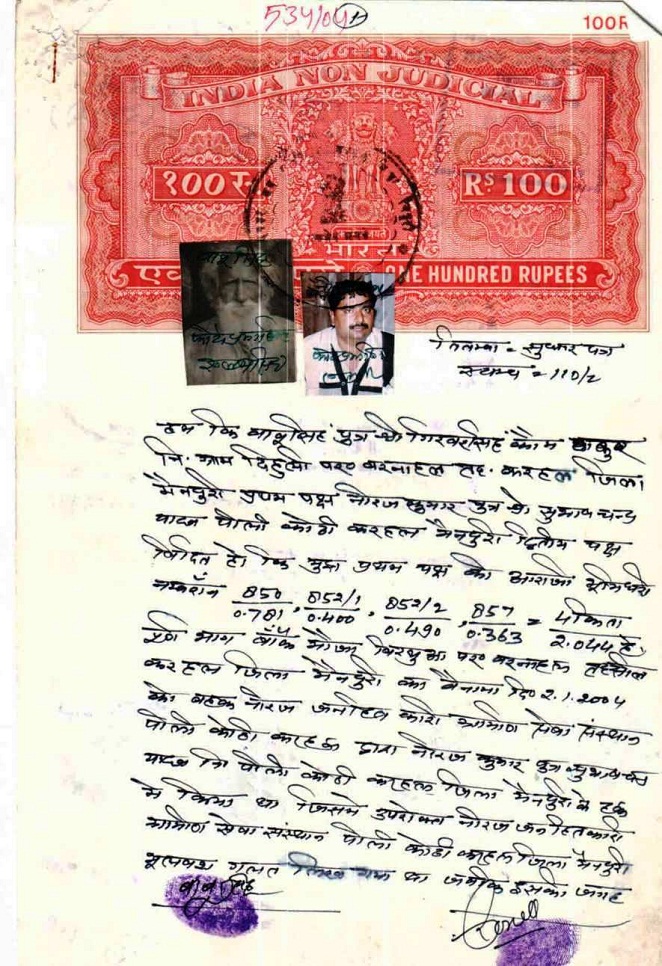 534/04
100R
INDIA NON JUDICIAL
१०० रु
RS 100
भारत
ONE HUNDRED RUPEES
तितम्बा = सुधार पत्र
स्टाम्प = 110/2
हम कि बाबूसिंह पुत्र श्री गिरवरसिंह कौम ठाकुर
नि. ग्राम दिहुली पर0 बरनाहल तह. करहल जिला
मैनपुरी प्रथम पक्ष नीरज कुमार पुत्र श्री सुभाष चन्द्र
यादव पीली कोठी करहल मैनपुरी द्वितीय पक्ष
विदित हो कि मुझ प्रथम पक्ष की आराजी भूमिधरी
850 852/1 852/2 857 = 4 किता
0.781, 0.400, 0.490, 0.363 2.044 है.
पूर्ण भाग मौजा पर0 बरनाहल तहसील
करहल जिला मैनपुरी का बैनामा दि0 2.1.2004
को बहक नीरज जनहित कारी ग्रामीण सेवा संस्थान
पीली कोठी करहल द्वारा नीरज कुमार पुत्र सुभाष चन्द्र
यादव नि पीली कोठी करहल जिला मैनपुरी के हक
में किया था जिसमें उपरोक्त नीरज जनहितकारी
ग्रामीण सेवा संस्थान पीली कोठी करहल जिला मैनपुरी
भूलवश गलत लिख गया था जबकि इसकी जगह
बाबूसिंह